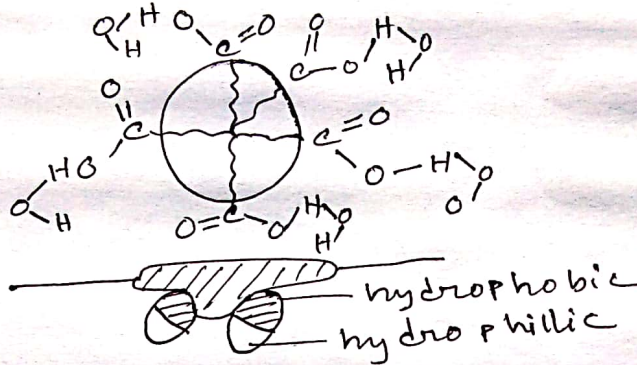 O H O C = O O H O
H C O H
O C C = O
H O O H O
O H O = C O H O O
H
hydrophobic
hydrophillic